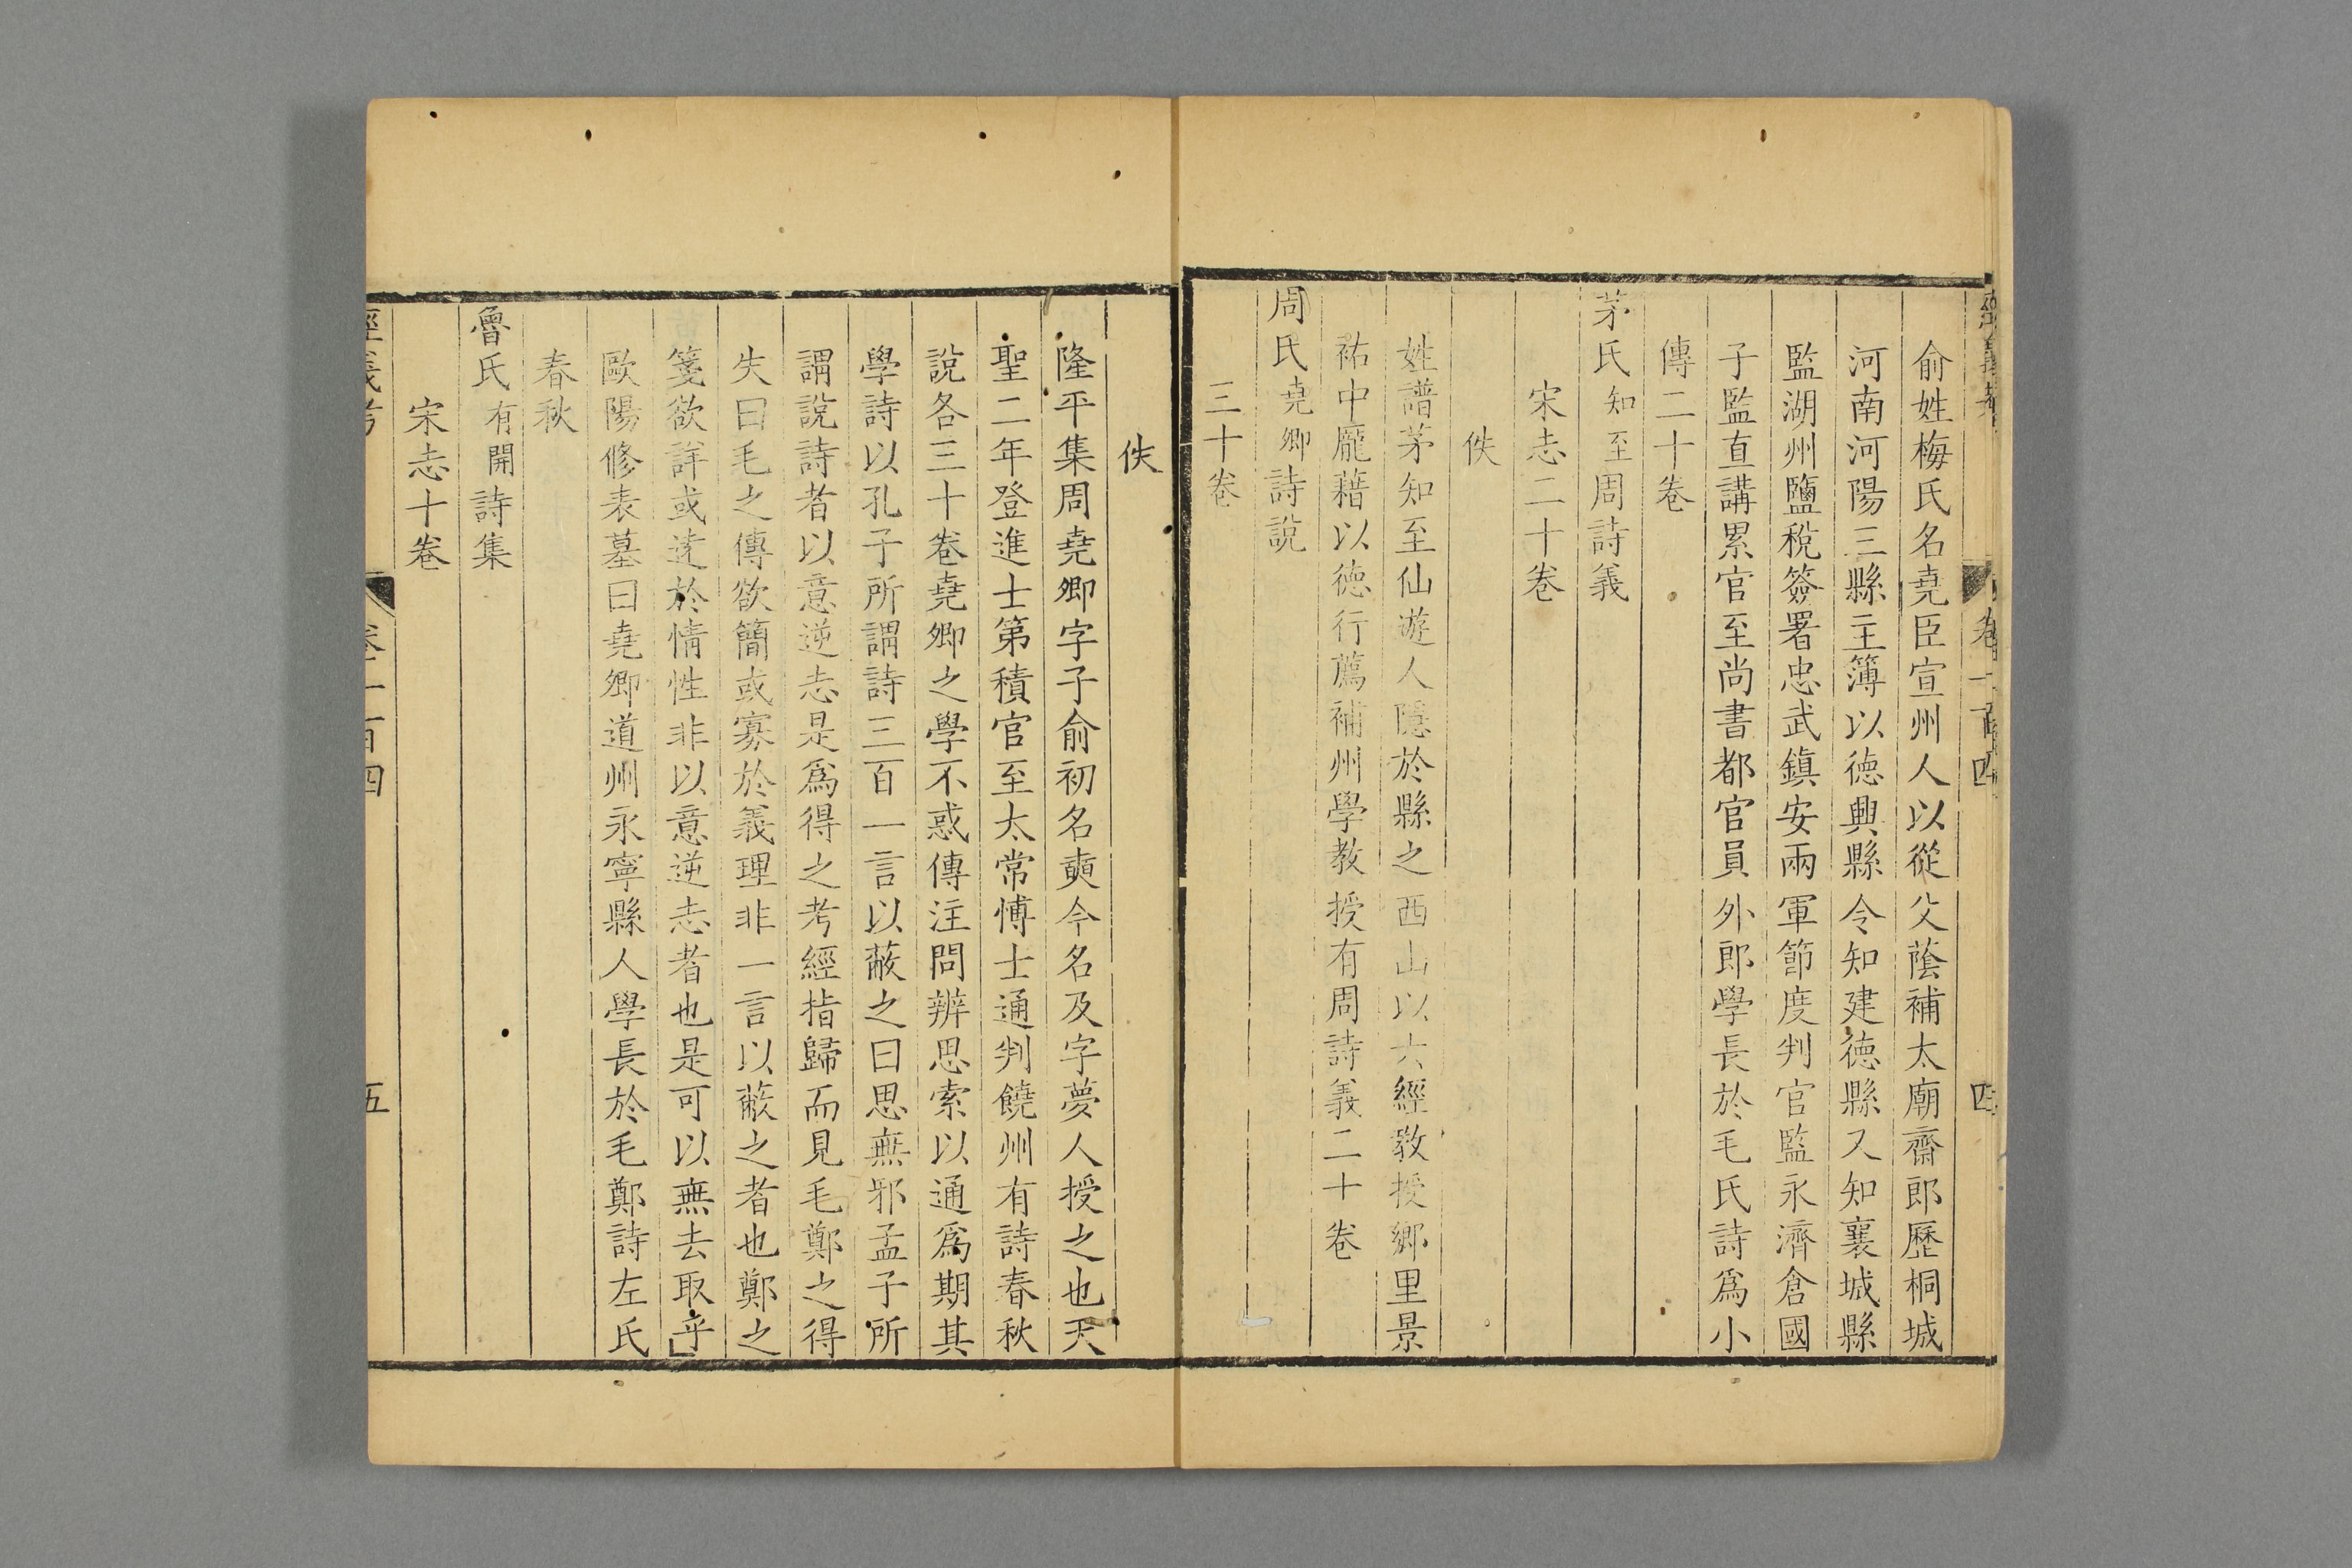 俞姓梅氏名堯臣宣州人以從父蔭補太廟齋郎歷桐城
河南河陽三縣主簿以徳興縣令知建徳縣又知襄城縣
監湖州鹽稅簽署忠武鎮安兩軍節度判官監永濟倉國
子監直講累官至尚書都官員外郎學長於毛氏詩爲小
傳二十卷
茅氏知至周詩義
宋志二十卷
佚
姓譜茅知至仙遊人隱於縣之西山以六經教授鄉里景
祐中龐藉以徳行薦補州學教授有周詩義二十卷
周氏堯卿詩說
三十卷
佚
隆平集周堯卿字子俞初名奭今名及字夢人授之也天
聖二年登進士第積官至太常博士通判饒州有詩春秋
說各三十卷堯卿之學不惑傳注問辨思索以通爲期其
學詩以孔子所謂詩三百一言以蔽之曰思無邪孟子所
謂說詩者以意逆志是爲得之考經指歸而見毛鄭之得
失曰毛之傳欲簡或寡於義理非一言以蔽之者也鄭之
箋欲詳或遠於情性非以意逆志者也是可以無去取乎
歐陽修表墓曰堯卿道州永寧縣人學長於毛鄭詩左氏
春秋
魯氏有開詩集
宋志十卷
經義考 卷一百四 五